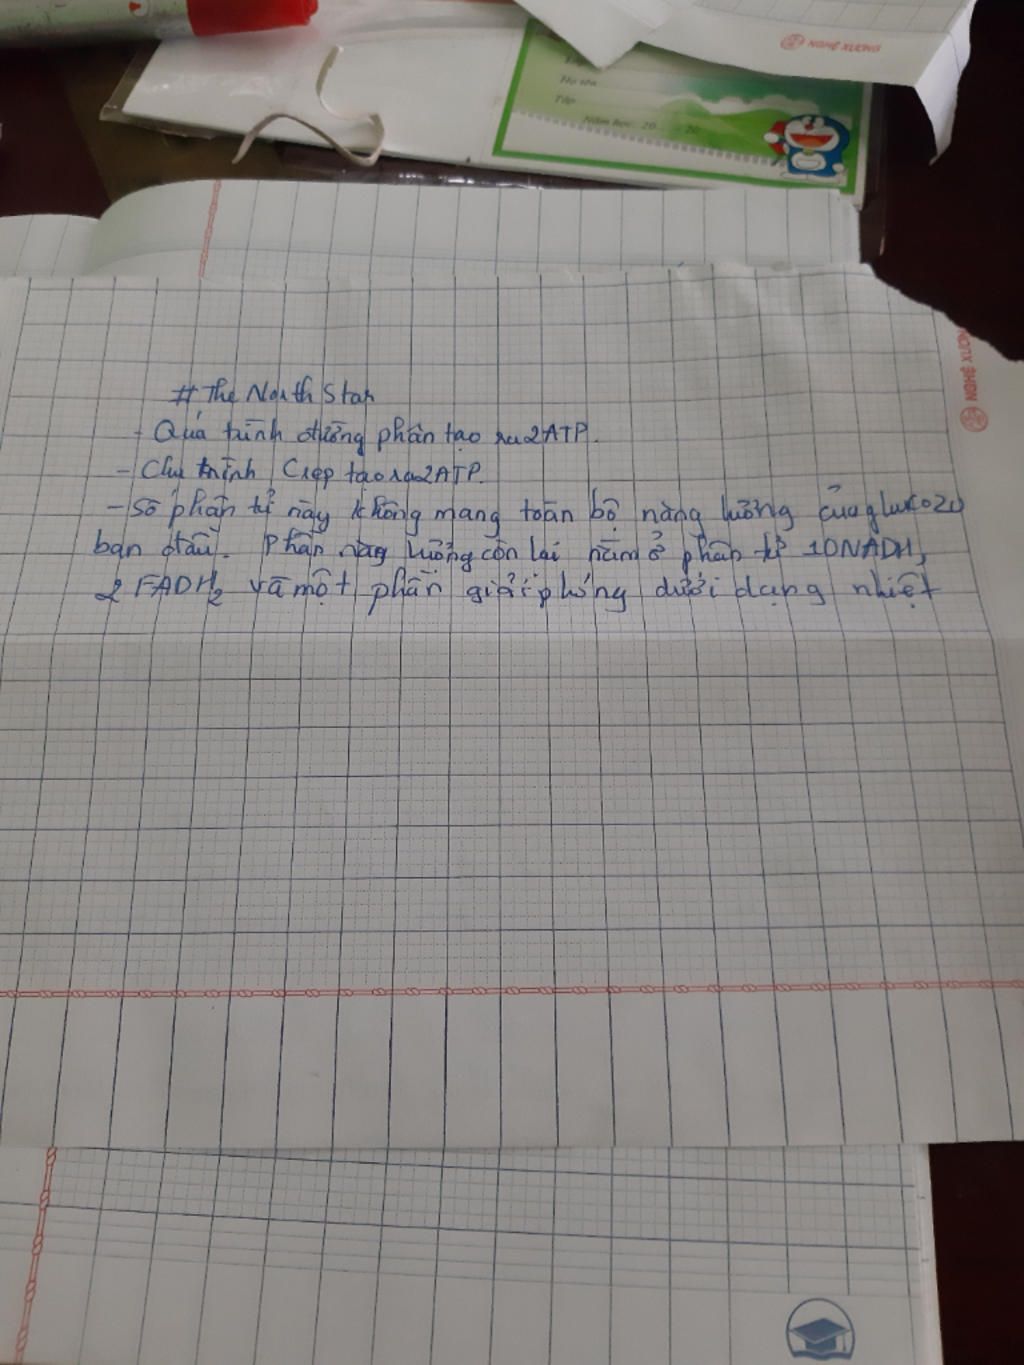 NGHỆ XƯƠNG
Họ tên
Lớp
Năm học: 20 - 20
NGHỆ XƯƠNG
# The North Star
- Quá trình đường phân tạo ra 2ATP.
- Chu trình Crep tạo ra 2ATP.
- Số phân tử này không mang toàn bộ năng lượng của glucozơ
ban đầu. Phần năng lượng còn lại nằm ở phân tử 10NADH,
2 FADH2 và một phần giải phóng dưới dạng nhiệt